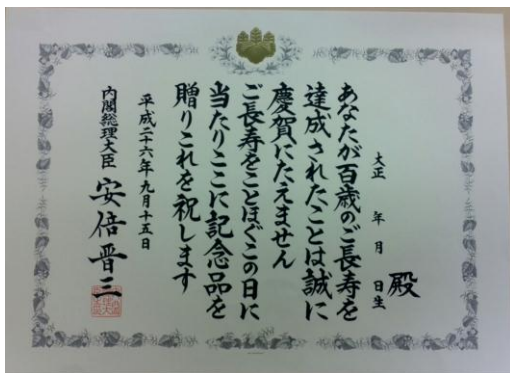 殿
大正　年　月　日生
あなたが百歳のご長寿を
達成されたことは誠に
慶賀にたえません
ご長寿をことほぐこの日に
当たりここに記念品を
贈りこれを祝します
平成二十六年九月十五日
内閣総理大臣　安倍晋三